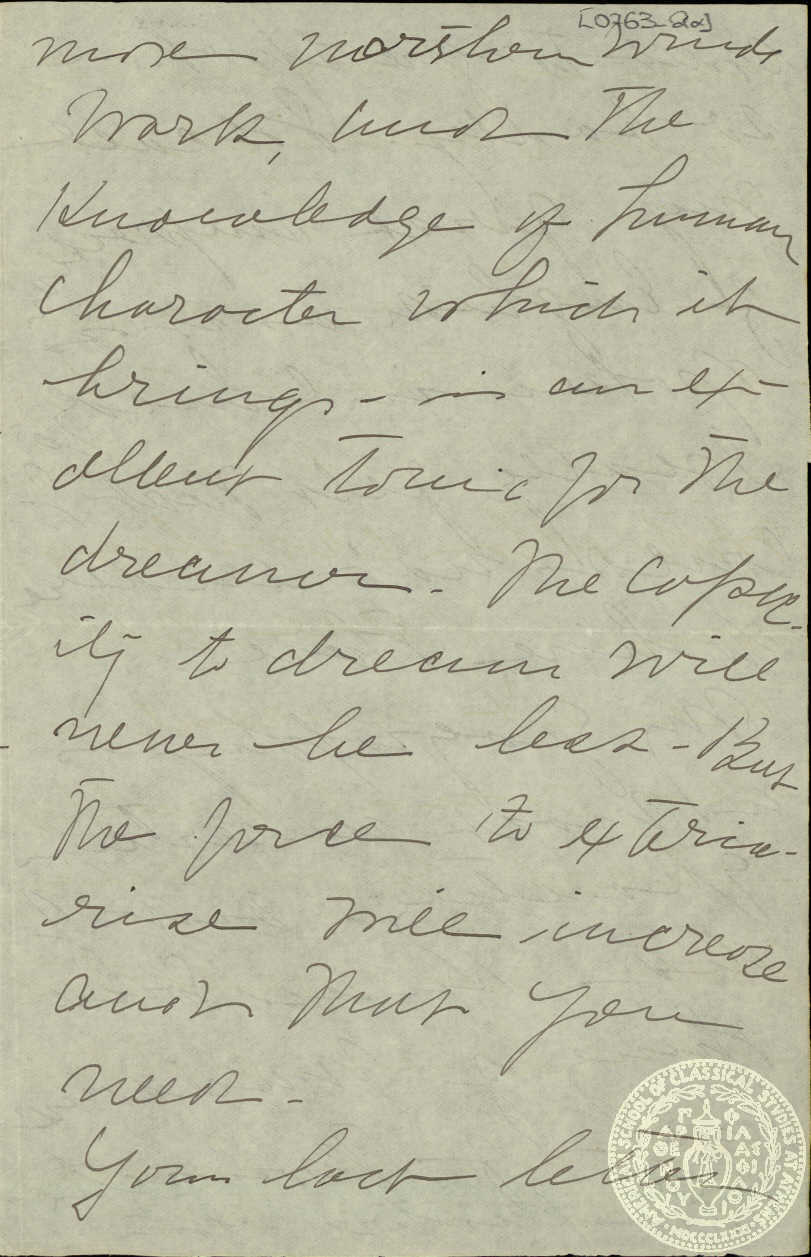 [0763-2a]
more northern winds
Work, and the
Knowledge of human
character which it
brings - is an ex-
cellent tonic for the
dreamer. The capac-
ity to dream will
never be less - But
the force to exterio-
rise will increase
and that you
need -
Your last letter
AMERICAN SCHOOL OF CLASSICAL STUDIES AT ATHENS
MDCCCLXXXI